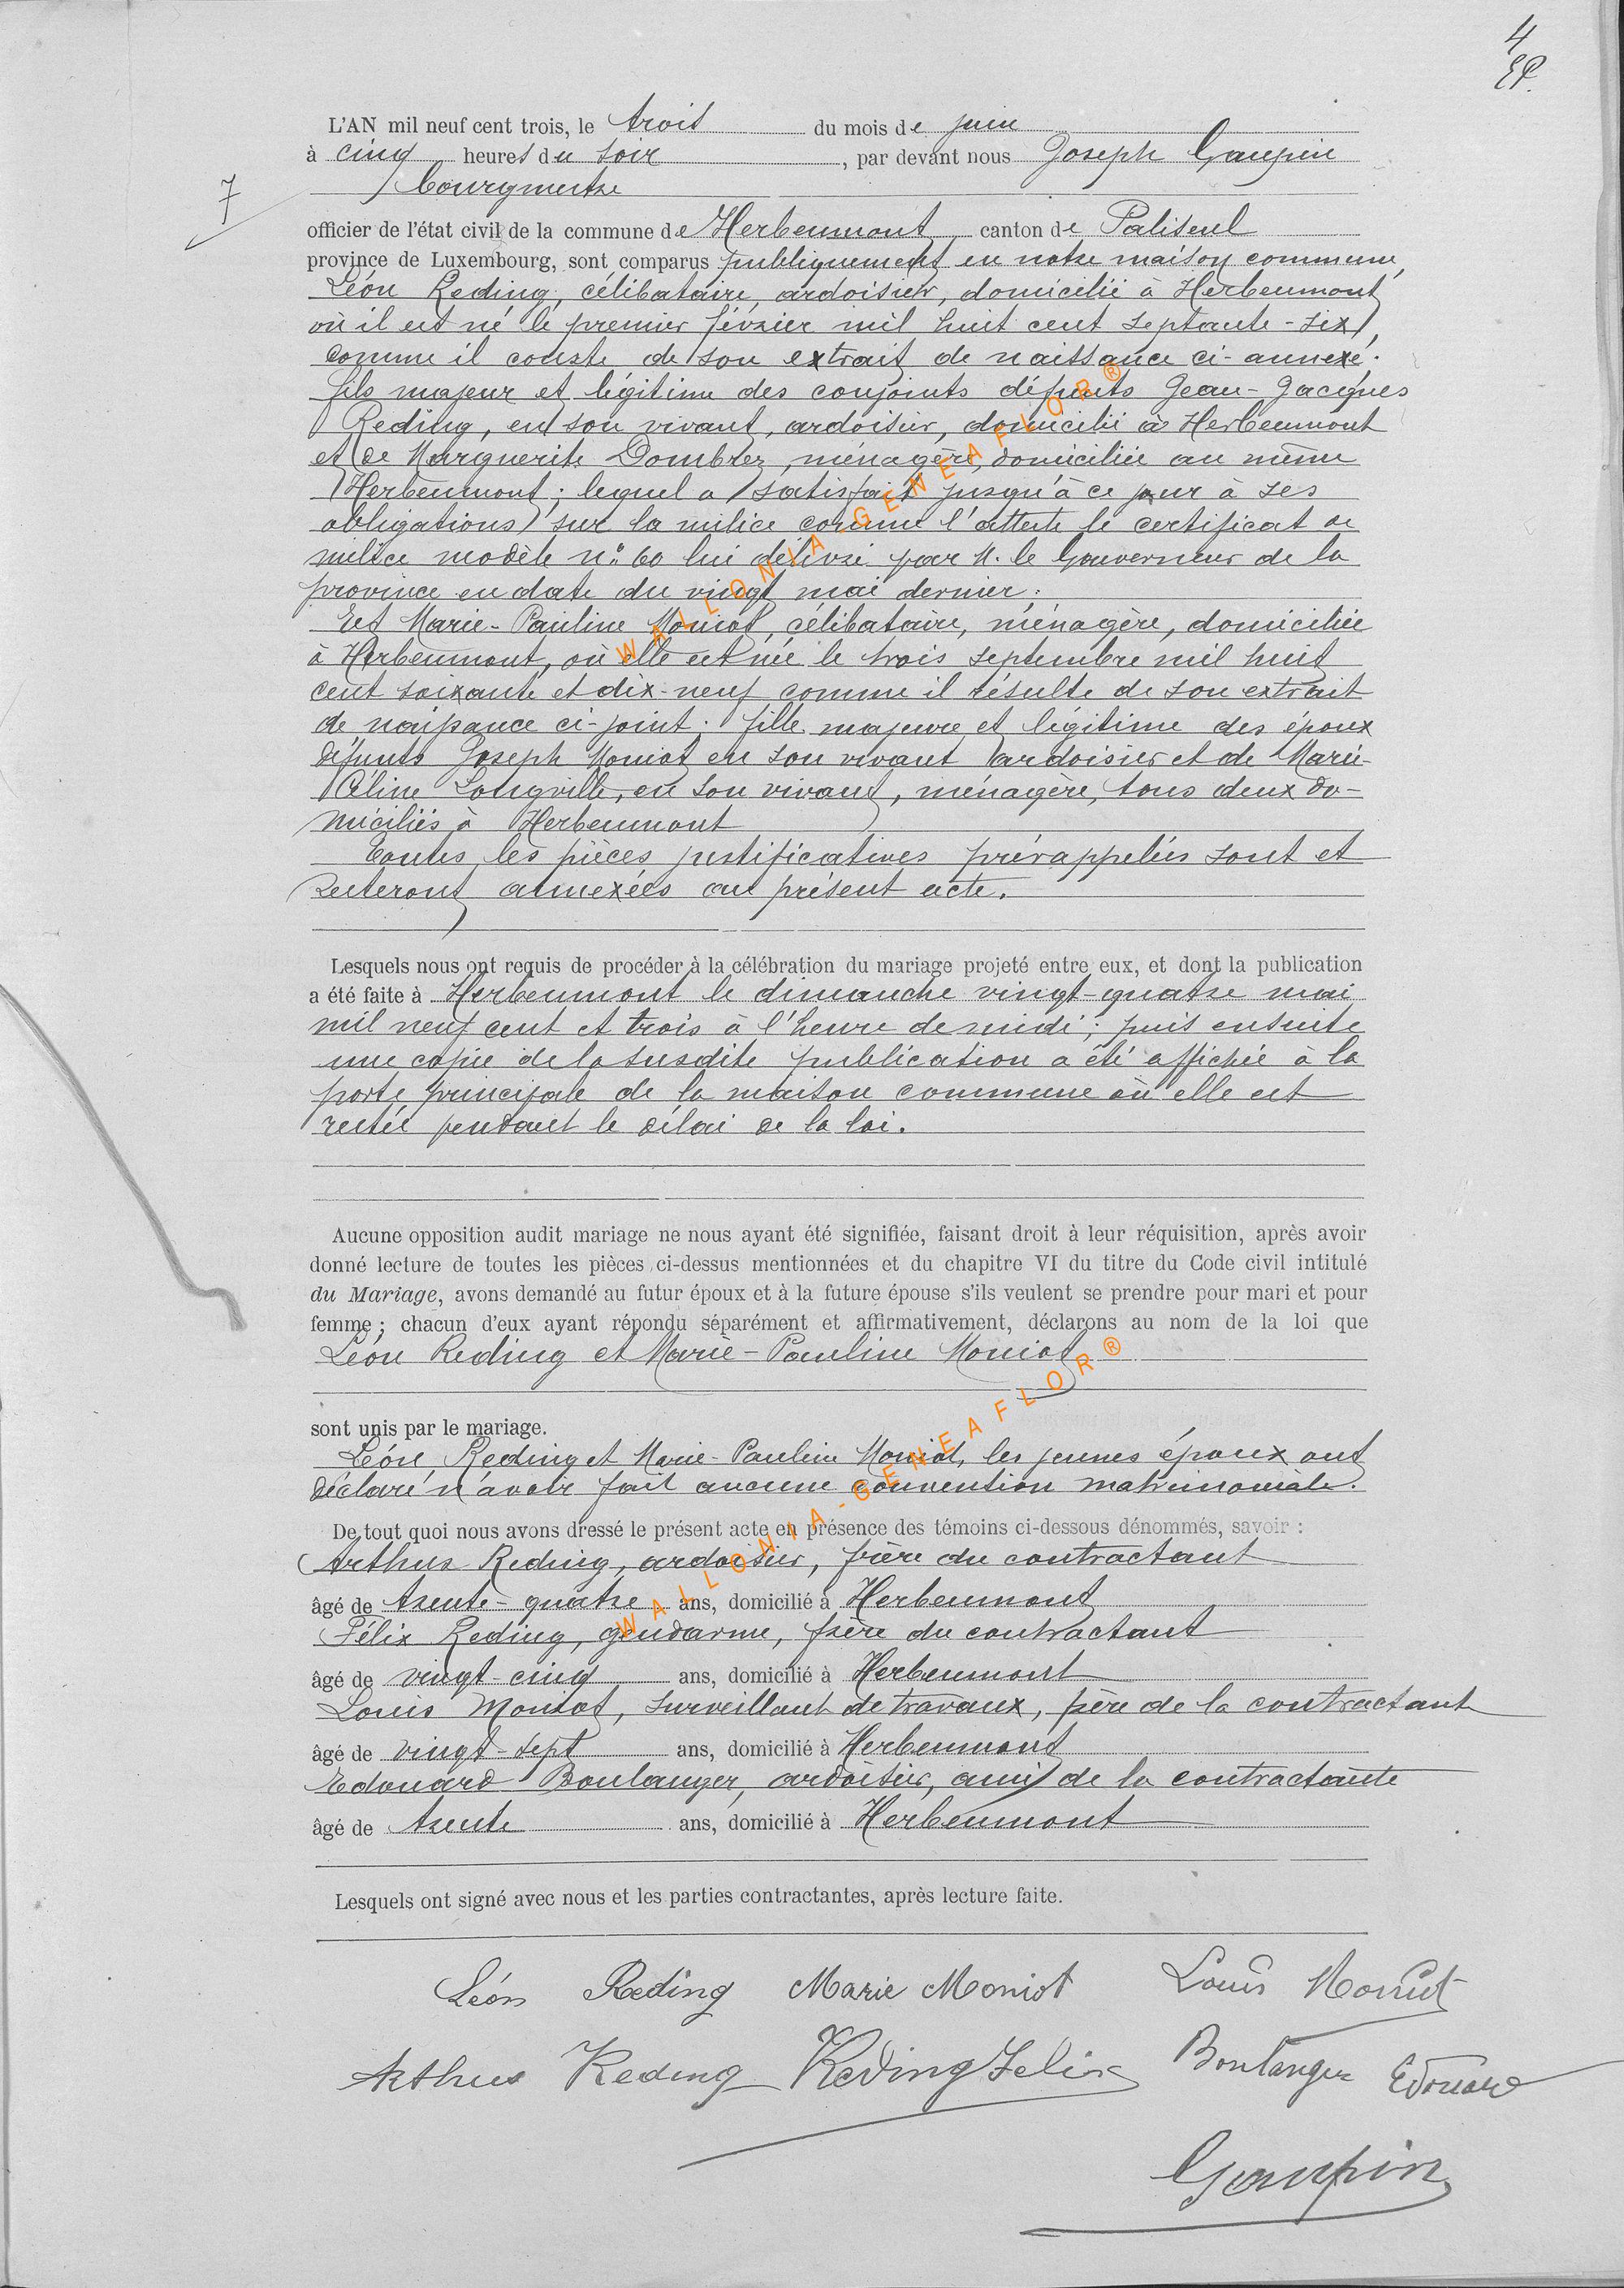 4
EP.
L'AN mil neuf cent trois, le trois du mois de juin
à cinq heures du soir, par devant nous Joseph Gaupin
Bourgmestre
7
officier de l'état civil de la commune de Herbeumont canton de Paliseul
province de Luxembourg, sont comparus publiquement en notre maison commune,
Léon Reding, célibataire, ardoisier, domicilié à Herbeumont
où il est né le premier février mil huit cent septante-six,
comme il conste de son extrait de naissance ci-annexé.
fils majeur et légitime des conjoints défunts Jean-Jacques
Reding, en son vivant, ardoisier, domicilié à Herbeumont
et de Marguerite Dombrez, ménagère, domiciliée au même
Herbeumont; lequel a satisfait jusqu'à ce jour à ses
obligations sur la milice comme l'atteste le certificat de
milice modèle n° 60 lui délivré par M. le Gouverneur de la
province en date du vingt mai dernier;
Et Marie-Pauline Moniot, célibataire, ménagère, domiciliée
à Herbeumont, où elle est née le trois septembre mil huit
cent soixante et dix-neuf comme il résulte de son extrait
de naissance ci-joint; fille majeure et légitime des époux
défunts Joseph Moniot en son vivant ardoisier et de Marie-
Céline Longville, en son vivant, ménagère, tous deux do-
miciliés à Herbeumont
Toutes les pièces justificatives prérappelées sont et
resteront annexées au présent acte.
Lesquels nous ont requis de procéder à la célébration du mariage projeté entre eux, et dont la publication
a été faite à Herbeumont le dimanche vingt-quatre mai
mil neuf cent et trois à l'heure de midi; puis ensuite
une copie de la susdite publication a été affichée à la
porte principale de la maison commune où elle est
restée pendant le délai de la loi.
Aucune opposition audit mariage ne nous ayant été signifiée, faisant droit à leur réquisition, après avoir
donné lecture de toutes les pièces ci-dessus mentionnées et du chapitre VI du titre du Code civil intitulé
du Mariage, avons demandé au futur époux et à la future épouse s'ils veulent se prendre pour mari et pour
femme; chacun d'eux ayant répondu séparément et affirmativement, déclarons au nom de la loi que
Léon Reding et Marie-Pauline Moniot
sont unis par le mariage.
Léon Reding et Marie-Pauline Moniot, les jeunes époux ont
déclaré n'avoir fait aucune convention matrimoniale.
De tout quoi nous avons dressé le présent acte en présence des témoins ci-dessous dénommés, savoir :
Arthur Reding, ardoisier, frère du contractant
âgé de trente-quatre ans, domicilié à Herbeumont
Félix Reding, gendarme, frère du contractant
âgé de vingt-cinq ans, domicilié à Herbeumont
Louis Moniot, surveillant de travaux, père de la contractant
âgé de vingt-sept ans, domicilié à Herbeumont
Edouard Boulanger, ardoisier, ami de la contractante
âgé de trente ans, domicilié à Herbeumont
Lesquels ont signé avec nous et les parties contractantes, après lecture faite.
Léon Reding Marie Moniot Louis Moniot
Arthur Reding Reding Félix Boulanger Edouard
Gaupin
WALLONIA-GENEAFLOR®
WALLONIA-GENEAFLOR®